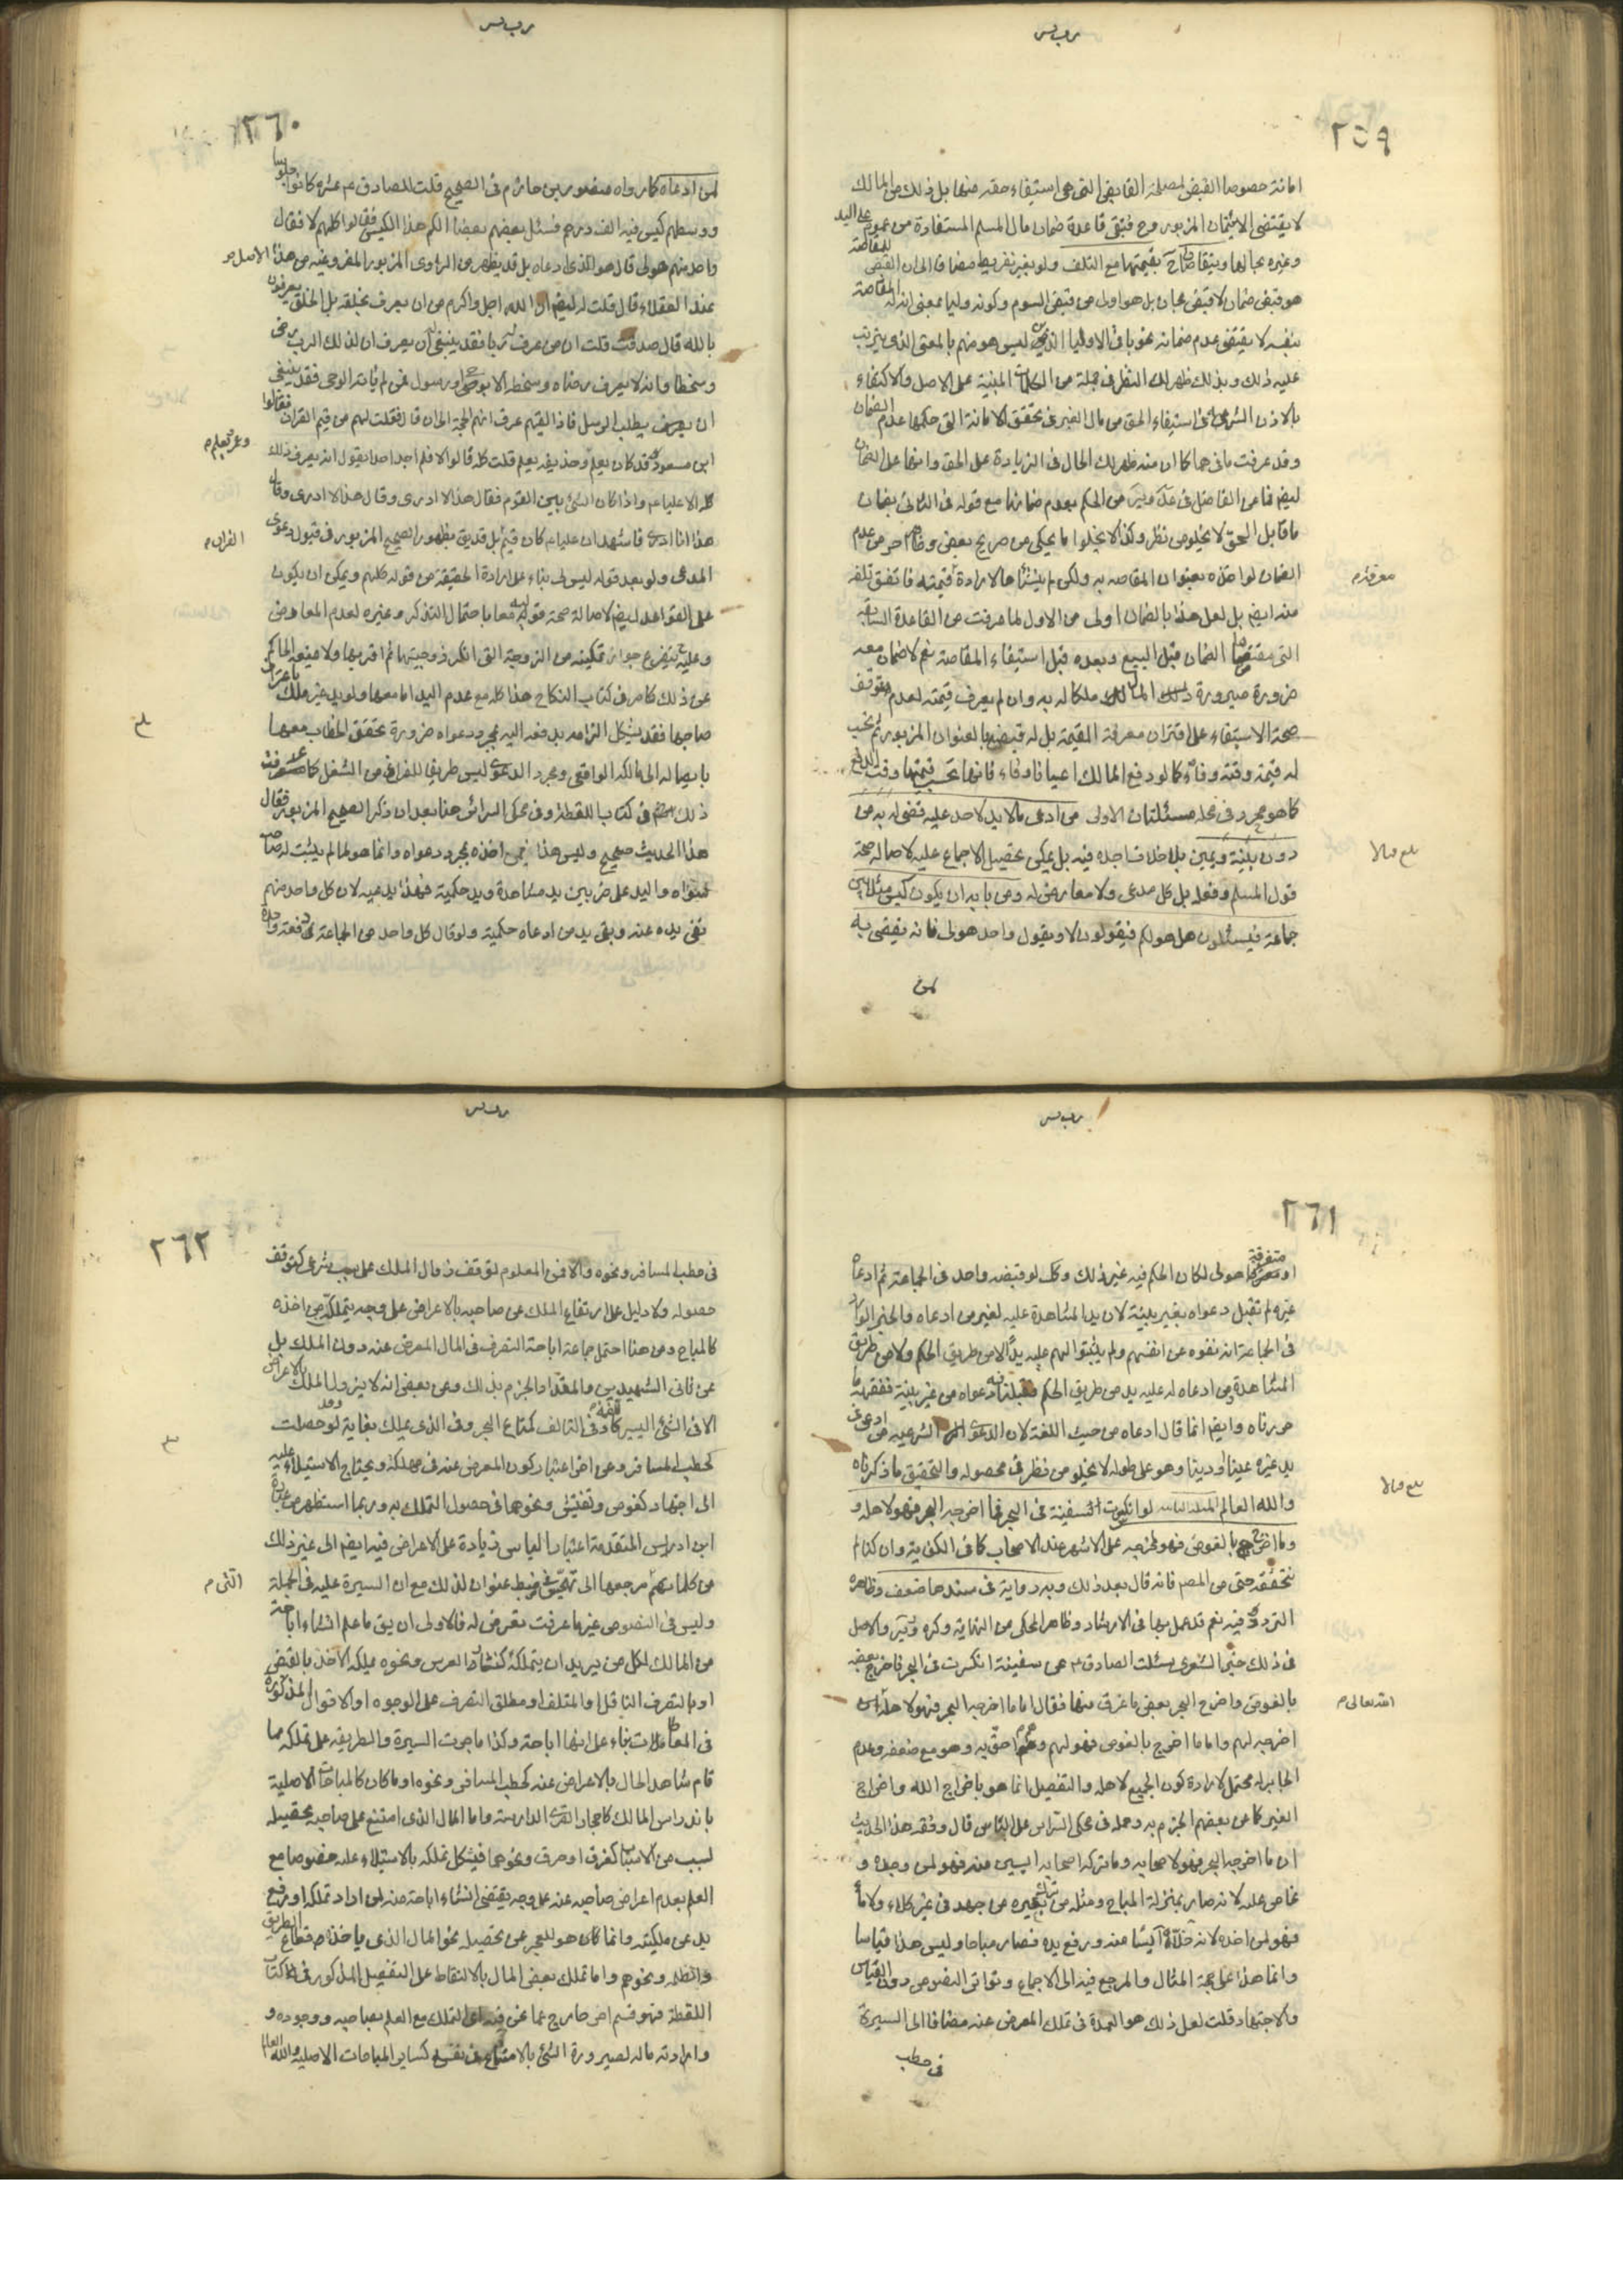 ٢٥٩
امانة خصوصا القبض لمصلحة القابض التي هي استيفاء حقه منها بل ذلك من المالك
لا يقتضي الائتمان المزبور وح فتبقى قاعدة ضمان مال المسلم المستفادة من عموم على اليد
وغيره بحالها ويتقاصان ح بقيمتها مع التلف ولو بغير تفريط مضافا الى ان القبض للمقاصة
هو قبض ضمان لا قبض مجان بل هو اولى من قبض السوم وكونه وليا بمعنى ان له المقاصة
بنفسه لا يقتضي عدم ضمانه نحو باقي الاولياء الذين ليس هو منهم بالمعنى الذي يترتب
عليه ذلك وبذلك ظهر لك النظر في جملة من الكلمات المبنية على الاصل والاكتفاء
بالاذن الشرعي في استيفاء الحق من مال الغير في تحقق الامانة التي حكمها عدم الضمان
وقد عرفت ما فيهما كما ان منه ظهر لك الحال في الزيادة على الحق وانها على الضمان
ايض فما عن الفاضل في عد وير من الحكم بعدم ضمانها مع قوله في الثاني بضمان
ما قابل الحق لا يخلو من نظر وكذا لا يخلو ما يحكى من صريح بعض وظاهر اخر من عدم
الضمان لو اخذه بعنوان المقاصه به ولكن لم ينشئها لارادة قيمته فاتفق تلفه
معرفة م
منه ايضم بل لعل هذا بالضمان اولى من الاول لما عرفت من القاعدة السابقة
التي مقتضاها الضمان قبل البيع وبعده قبل استيفاء المقاصة نعم لا ضمان معه
ضرورة صيرورة المال ملكا له به وان لم يعرف قيمته لعدم توقف
صحة الاستيفاء على اقتران معرفة القيمة بل له قبضه بالعنوان المزبور ثم يحسب
له قيمة وقته وفاء كما لو دفع المالك اعيانا وفاء فانها تحسب قيمتها وقت الدفع
كما هو محرر في محله مسئلتان الاولى من ادعى مالا يد لاحد عليه قضى له به من
دون بينة ويمين بلا خلاف اجده فيه بل يمكن تحصيل الاجماع عليه لاصالة صحة
قول المسلم وفعله بل كل مدعى ولا معارض له ومن بابه ان يكون كيس مثلا بين
جماعة فيسئلون هل هو لكم فيقولون لا ويقول واحد هو لى فانه يقضى به
لمن
٢٦٠
لمن ادعاه كما رواه منصور بن حازم في الصحيح قلت للصادق ع عشرة كانوا جلوسا
ووسطهم كيس فيه الف درهم فسئل بعضهم بعضا الكم هذا الكيس فقالوا كلهم لا فقال
واحد منهم هو لى قال هو للذي ادعاه بل قد يظهر من الراوى المزبور المفروغيه من هذا الاصل
عند العقلاء قال قلت له ايضم ان الله اجل واكرم من ان يعرف بخلقه بل الخلق يعرفون
بالله قال صدقت قلت ان من عرف له ربا فقد ينبغي ان يعرف ان لذلك الرب رضى
وسخطا وانه لا يعرف رضاه وسخطه الا بوحى او رسول فمن لم ياته الوحى فقد ينبغى
ان يعرف يطلب الرسل فاذا لقيهم عرف انهم الحجة الى ان قال فقلت لهم من قيم القران فقالوا
ابن مسعود قد كان يعلم وحذيفه يعلم قلت كله قالوا لا فلم اجد احدا يقول انه يعرف ذلك
وعمر يعلم م
كله الا عليا عم واذا كان الشئ بين القوم فقال هذا لا ادرى وقال هذا لا ادرى وقال
هذا انا ادرى فاشهد ان عليا ع كان قيم بل قد يق بظهور الصحيح المزبور في قبول دعوى
القران م
المدعى ولو بعد قوله ليس لى بناء على ارادة الحقيقة من قوله كلهم ويمكن ان يكون
على القواعد ايضم لاصالة صحة قوليه معا باحتمال التذكر وغيره لعدم المعارض
وعليه يتفرع جواز تمكينه من الزوجة التي انكر زوجيتها ثم اقر بها ولا يمنعه الحاكم
عن ذلك كما مر في كتاب النكاح هذا كله مع عدم اليد اما معها ولو يد غير ملك باعتراف
صاحبها فقد يشكل الزامه بدفعه اليه بمجرد دعواه ضرورة تحقق الخطاب معها
بايصاله الى مالكه الواقعى ومجرد الدعوى ليس طريقا للفراغ من الشغل كما عرفت
ذلك في كتاب اللقطة وفى محكى السرائر هنا بعد ان ذكر الصحيح المزبور فقال
هذا الحديث صحيح وليس هذا ممن اخذه بمجرد دعواه وانما هو لما لم يثبت له صاحب
سواه واليد على ضربين يد مشاهدة ويد حكمية فهذا يد عيه لان كل واحد منهم
نفى يده عنه وبقى يد من ادعاه حكمية ولو قال كل واحد من الجماعة في دفعة واحدة
٢٦١
او متفرقة هو لى لكان الحكم فيه غير ذلك وكك لو قبضه واحد في الجماعة ثم ادعاه
غيره لم تقبل دعواه بغير بينة لان يد المشاهدة عليه لغير من ادعاه والخبر الوارد
في الجماعة انه نفوه عن انفسهم ولم يثبتوا لهم عليه يدا لا من طريق الحكم ولا من طريق
المشاهدة ومن ادعاه له عليه يد من طريق الحكم دعواه من غير بينة ففقهه ما
حررناه وايضم انما قال ادعاه من حيث اللغة لان الدعوى الشرعيه من ادعى في
يد غيره عينا او دينا وهو على طوله لا يخلو من نظر في محصوله والتحقيق ما ذكرناه
والله العالم المسئلة الثانية لو انكسرت السفينة في البحر فما اخرجه البحر فهو لاهله و
وما اخرج بالغوص فهو لمخرجه على الاشهر عند الاصحاب كما في الكفاية وان كنا لم
نتحققه حتى من المصم فانه قال بعد ذلك وبه رواية في سندها ضعف وظاهره
التردد فيه نعم قد عمل بها في الارشاد وظاهر المحكى من النهاية وكره وير والاصل
في ذلك خبر الشعيرى سئلت الصادق ع عن سفينة انكسرت في البحر فاخرج بعضه
بالغوص واخرج البحر بعض ما غرق منها فقال اما ما اخرجه البحر فهو لاهله
الله تعالى م
اخرجه لهم واما ما اخرج بالغوص فهو لهم وهم احق به وهو مع ضعفه وعدم
الجابر له محتمل لارادة كون الجميع لاهله والتفصيل انما هو باخراج الله واخراج
الغير كما عن بعضهم الجزم به وحمله في محكى السرائر على الياس قال وفقه هذا الحديث
ان ما اخرجه البحر فهو لاصحابه وما تركه اصحابه ايسين منه فهو لمن وجده و
غاص عليه لانه صار بمنزلة المباح ومثله من ترك بعيره من جهد في غير كلاء ولا ماء
فهو لمن اخذه لانه خلاه آيسا منه ورفع يده فصار مباحا وليس هذا قياسا
وانما هذا على جهة المثال والمرجع فيه الى الاجماع وتواتر النصوص دون القياس
والاجتهاد قلت لعل ذلك هو العمدة في تملك المعرض عنه مضافا الى السيرة
في حطب
٢٦٢
في حطب المسافر ونحوه والا فمن المعلوم توقف زوال الملك على سبب شرعى كتوقف
حصوله ولا دليل على ارتفاع الملك عن صاحبه بالاعراض على وجه يتملكه من اخذه
كالمباح ومن هنا احتمل جماعة اباحة التصرف في المال المعرض عنه دون الملك بل
عن ثاني الشهيدين والمقداد الجزم بذلك وعن بعض انه لا يزول الملك بالاعراض
الا في الشئ اليسير كاللقمة وفي التالف كمتاع البحر وفي الذي يملك بغاية وقد حصلت
كحطب المسافر وعن اخر اعتبار كون المعرض عنه في مهلكة ويحتاج الاستيلاء عليه
الى اجتهاد كغوص وتفتيش ونحوهما في حصول التملك به وربما استظهر من عبارة
ابن ادريس المتقدمة اعتبار الياس زيادة على الاعراض فيه ايضم الى غير ذلك
من كلماتهم مرجعها الى تهجس في ضبط عنوان لذلك مع ان السيرة عليه في الجملة
وليس في النصوص غير ما عرفت تعرض له فالاولى ان يق ما علم انشاء اباحة
من المالك لكل من يريد ان يتملكه كنثار العرس ونحوه يملكه الاخذ بالقبض
او بالتصرف الناقل او المتلف او مطلق التصرف على الوجوه او الاقوال المذكورة
في المعاطات بناء على انها اباحة وكذا ما جرت السيرة والطريقه على تملكه مما
قام شاهد الحال بالاعراض عنه كحطب المسافر ونحوه او ما كان كالمباحات الاصلية
باندراس المالك كاحجار القرى الدارسة واما المال الذى امتنع على صاحبه تحصيله
لسبب من الاسباب كغرق او حرق ونحوهما فيشكل تملكه بالاستيلاء عليه خصوصا مع
العلم بعدم اعراض صاحبه عنه على وجه يقتضى انشاء اباحة منه لمن اراد تملكه او رفع
يد عن ملكيته وانما كان هو للعجز عن تحصيله نحو المال الذى ياخذه قطاع الطريق
والظلمه ونحوهم واما تملك بعض المال بالالتقاط على التفصيل المذكور في كتاب
اللقطة فهو قسم اخر خارج عما نحن فيه التملك مع العلم بصاحبه ووجوده و
وارادته ماله لصيرورة الشئ بالامتناع كساير المباحات الاصلية والله العالم